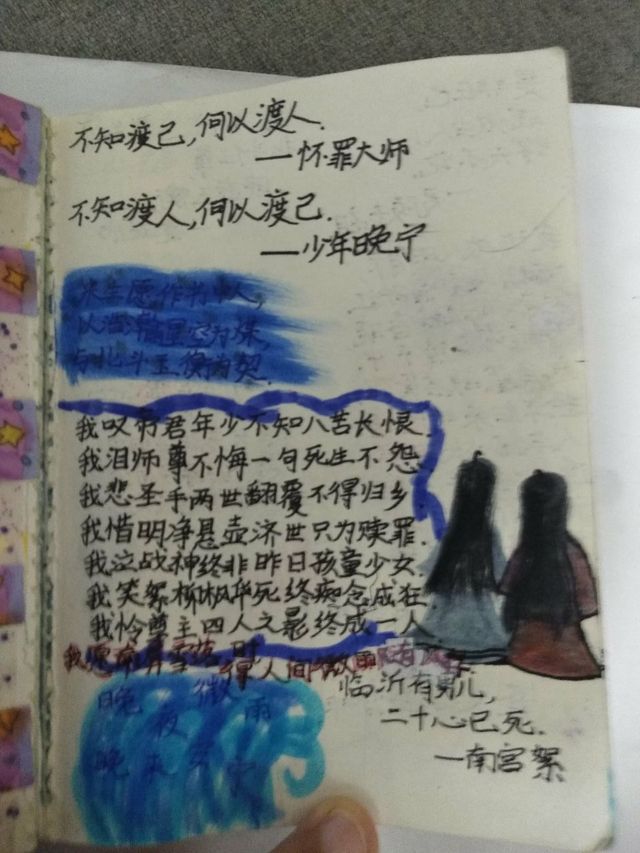 不知渡己，何以渡人.
——怀罪大师
不知渡人，何以渡己.
——少年晚宁
来生愿作书中人，
以浩瀚星空为媒，
与北斗玉衡为契.
我叹霄君年少不知八苦长恨.
我泪师尊不悔一句死生不怨.
我悲圣手两世翻覆不得归乡.
我惜明净悬壶济世只为赎罪.
我泣战神终非昨日孩童少女.
我笑絮柳枫华死终痴念成狂.
我怜尊主四人之影终成一人
我愿
得人间微雨
临沂有男儿，
二十心已死.
—南宫絮
晚夜微雨
晚夜